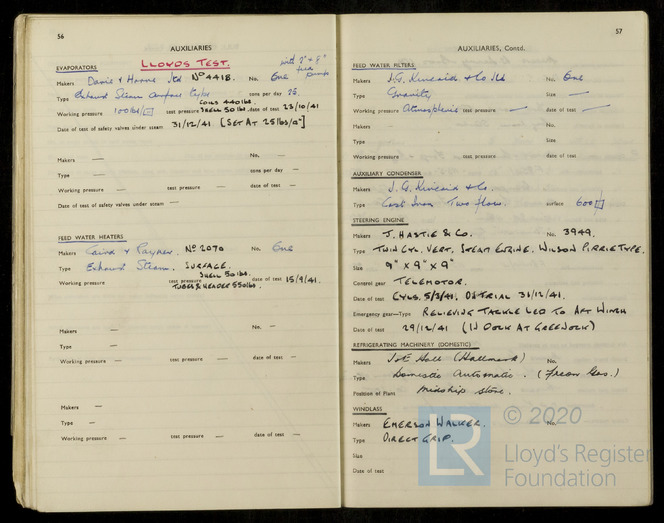 56
AUXILIARIES
EVAPORATORS
LLOYDS TEST.
with 7" x 8"
feed
pumps
Makers Davie & Horne Ltd No 4418. No. One
Type Exhaust Steam Surface type tons per day 25.
COILS 440 lbs.
Working pressure 100 lbs/□" test pressure SHELL 50 lbs. date of test 23/10/41
Date of test of safety valves under steam 31/12/41 [SET AT 25 lbs/□"]
Makers — No. —
Type — tons per day —
Working pressure — test pressure — date of test —
Date of test of safety valves under steam —
FEED WATER HEATERS
Makers Caird & Rayner. No 2070 No. One
Type Exhaust Steam. SURFACE.
SHELL 50 lbs.
Working pressure test pressure TUBES & HEADER 550 lbs. date of test 15/9/41.
Makers — No. —
Type —
Working pressure — test pressure — date of test —
Makers —
Type —
Working pressure — test pressure — date of test —
57
AUXILIARIES, Contd.
FEED WATER FILTERS
Makers J.G. Kincaid & Co Ltd No. One
Type Gravity Size —
Working pressure Atmospheric test pressure — date of test —
Makers — No.
Type Size
Working pressure test pressure date of test
AUXILIARY CONDENSER
Makers J. G. Kincaid & Co.
Type Cast Iron Two flow. surface 600 □'
STEERING ENGINE
Makers J. HASTIE & CO. No. 3949.
Type TWIN CYL. VERT. STEAM ENGINE. WILSON PIRRIE TYPE.
Size 9" x 9" x 9"
Control gear TELEMOTOR.
Date of test CYLS. 5/3/41. ON TRIAL 31/12/41.
Emergency gear—Type RELIEVING TACKLE LED TO AFT WINCH
Date of test 29/12/41 (IN DOCK AT GREENOCK)
REFRIGERATING MACHINERY (DOMESTIC)
Makers J & E Hall (Hallmark) No.
Type Domestic Automatic. (Freon Gas.)
Position of Plant Midship Store.
WINDLASS
Makers EMERSON WALKER. No.
Type DIRECT GRIP.
Size
Date of test
LR
© 2020
Lloyd's Register
Foundation